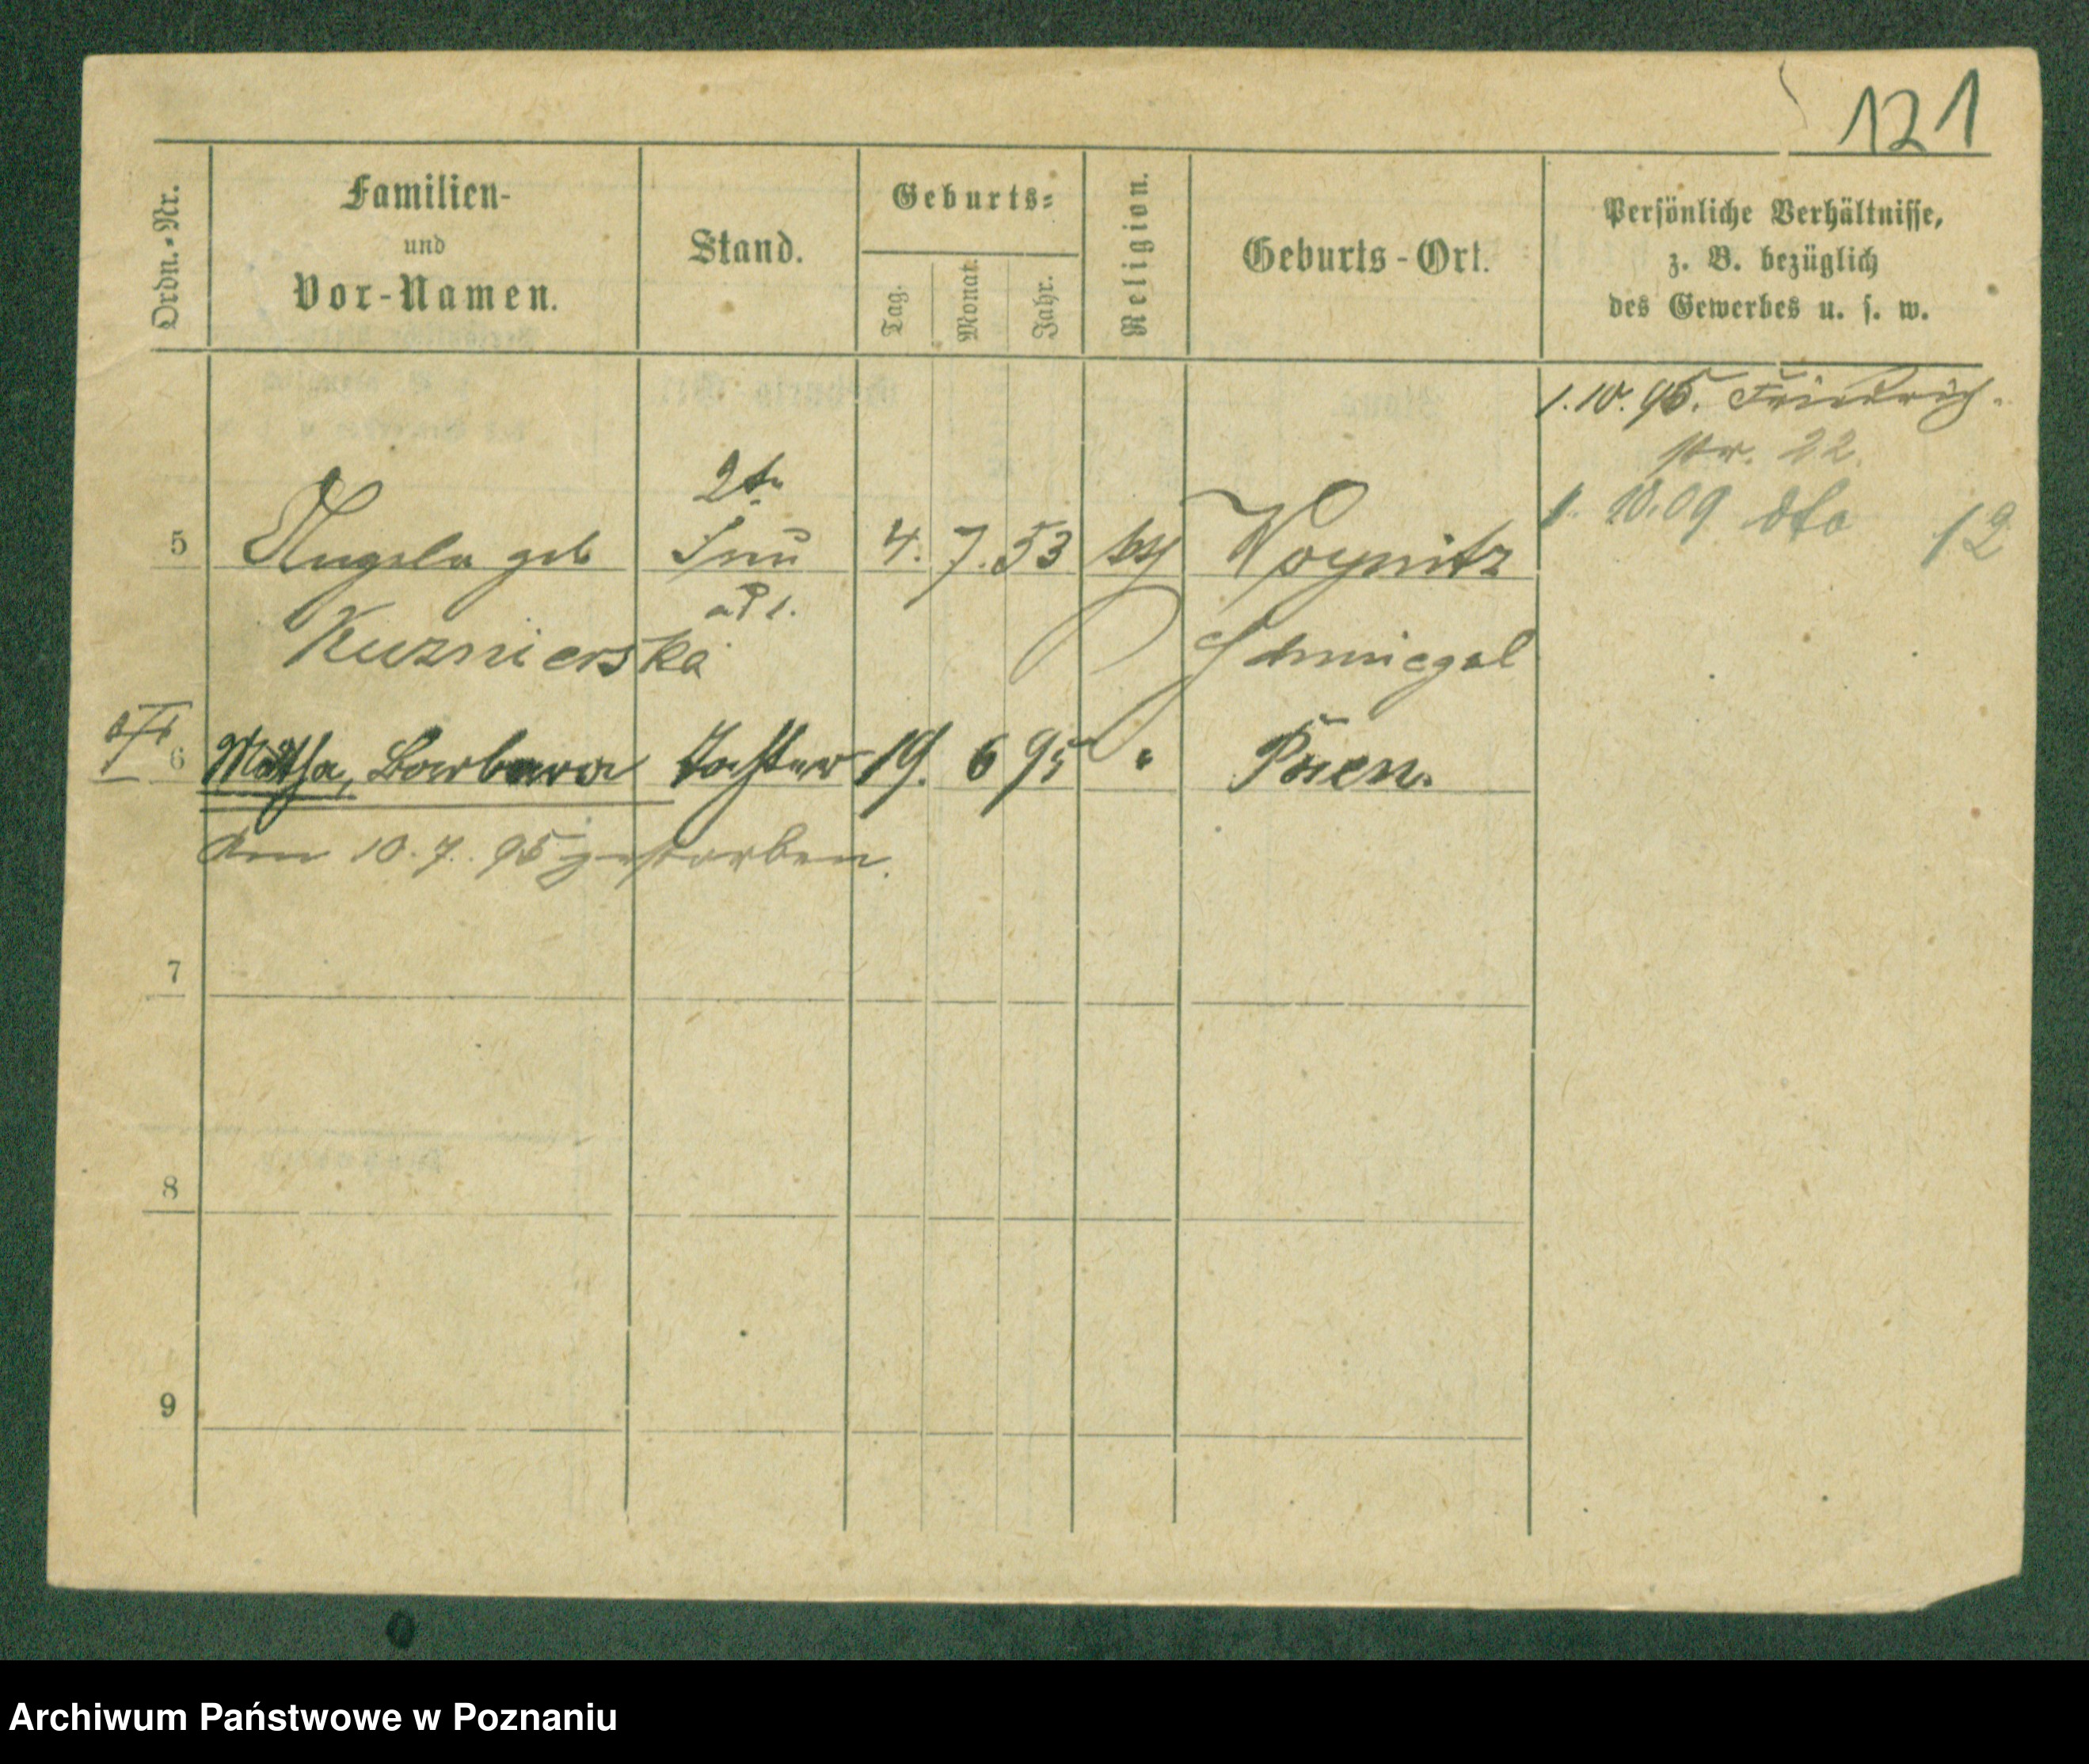 121
Ordn.-Nr.
Familien-
und
Vor-Namen.
Stand.
Geburts-
Tag.
Monat.
Jahr.
Religion.
Geburts-Ort.
Persönliche Verhältnisse,
z. B. bezüglich
des Gewerbes u. s. w.
1. 10. 95. Friedrich-
str. 22.
1. 10. 09 dto 12
2te
5 Angela geb Frau 4. 7. 53 kath Woynitz
Kuznierska Schmiegel
6 Barbara Tochter 19. 6 95 " Posen.
den 10. 7. 95 gestorben.
7
8
9
Archiwum Państwowe w Poznaniu